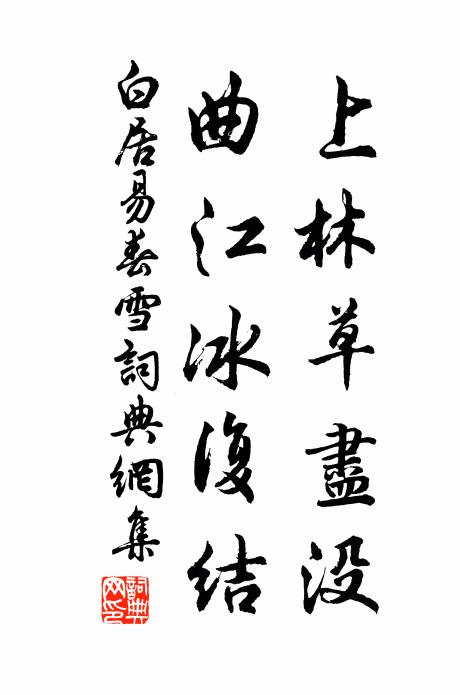 上林草盡没
曲江冰復结
白居易春雪詞典網集
詞典